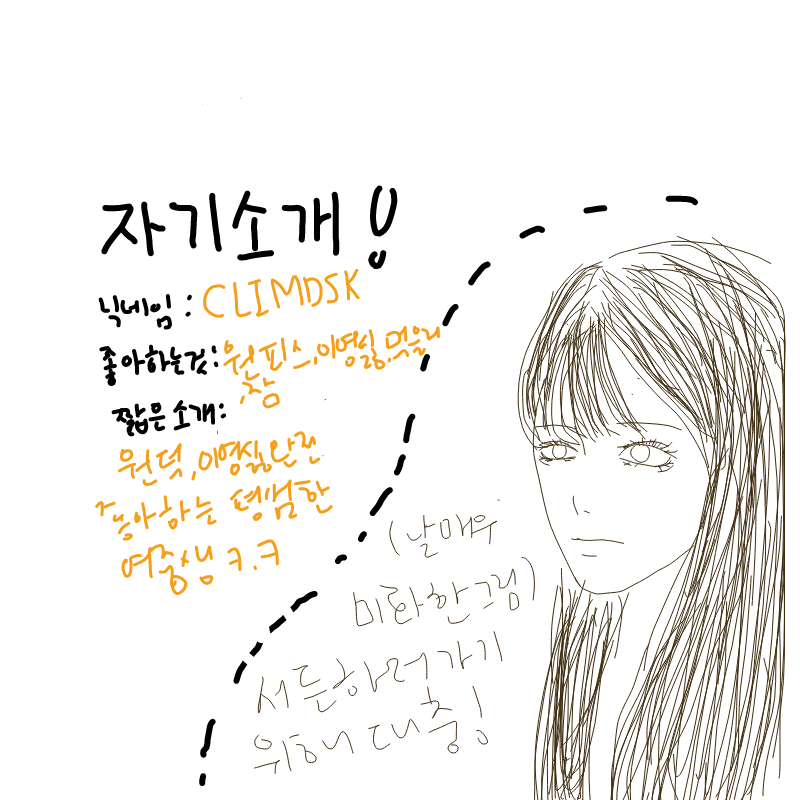 자기소개!
닉네임 : CLIMDSK
좋아하는것: 원피스, 이영싫, 먹을거
, 참
짧은 소개:
원덕, 이영싫완전
좋아하는 평범한
여중생 ㅋ.ㅋ
(날 매우
미화한 그림)
서든하러가기
위해 대충!